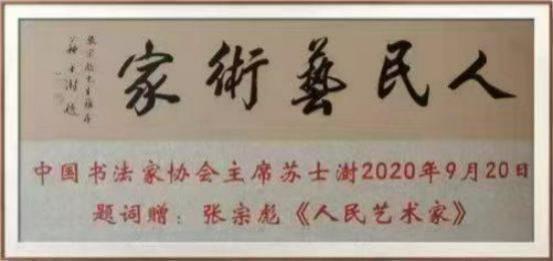 人民藝術家
張宗彪先生雅存
蘇士澍題
中国书法家协会主席苏士澍2020年9月20日
题词赠：张宗彪《人民艺术家》